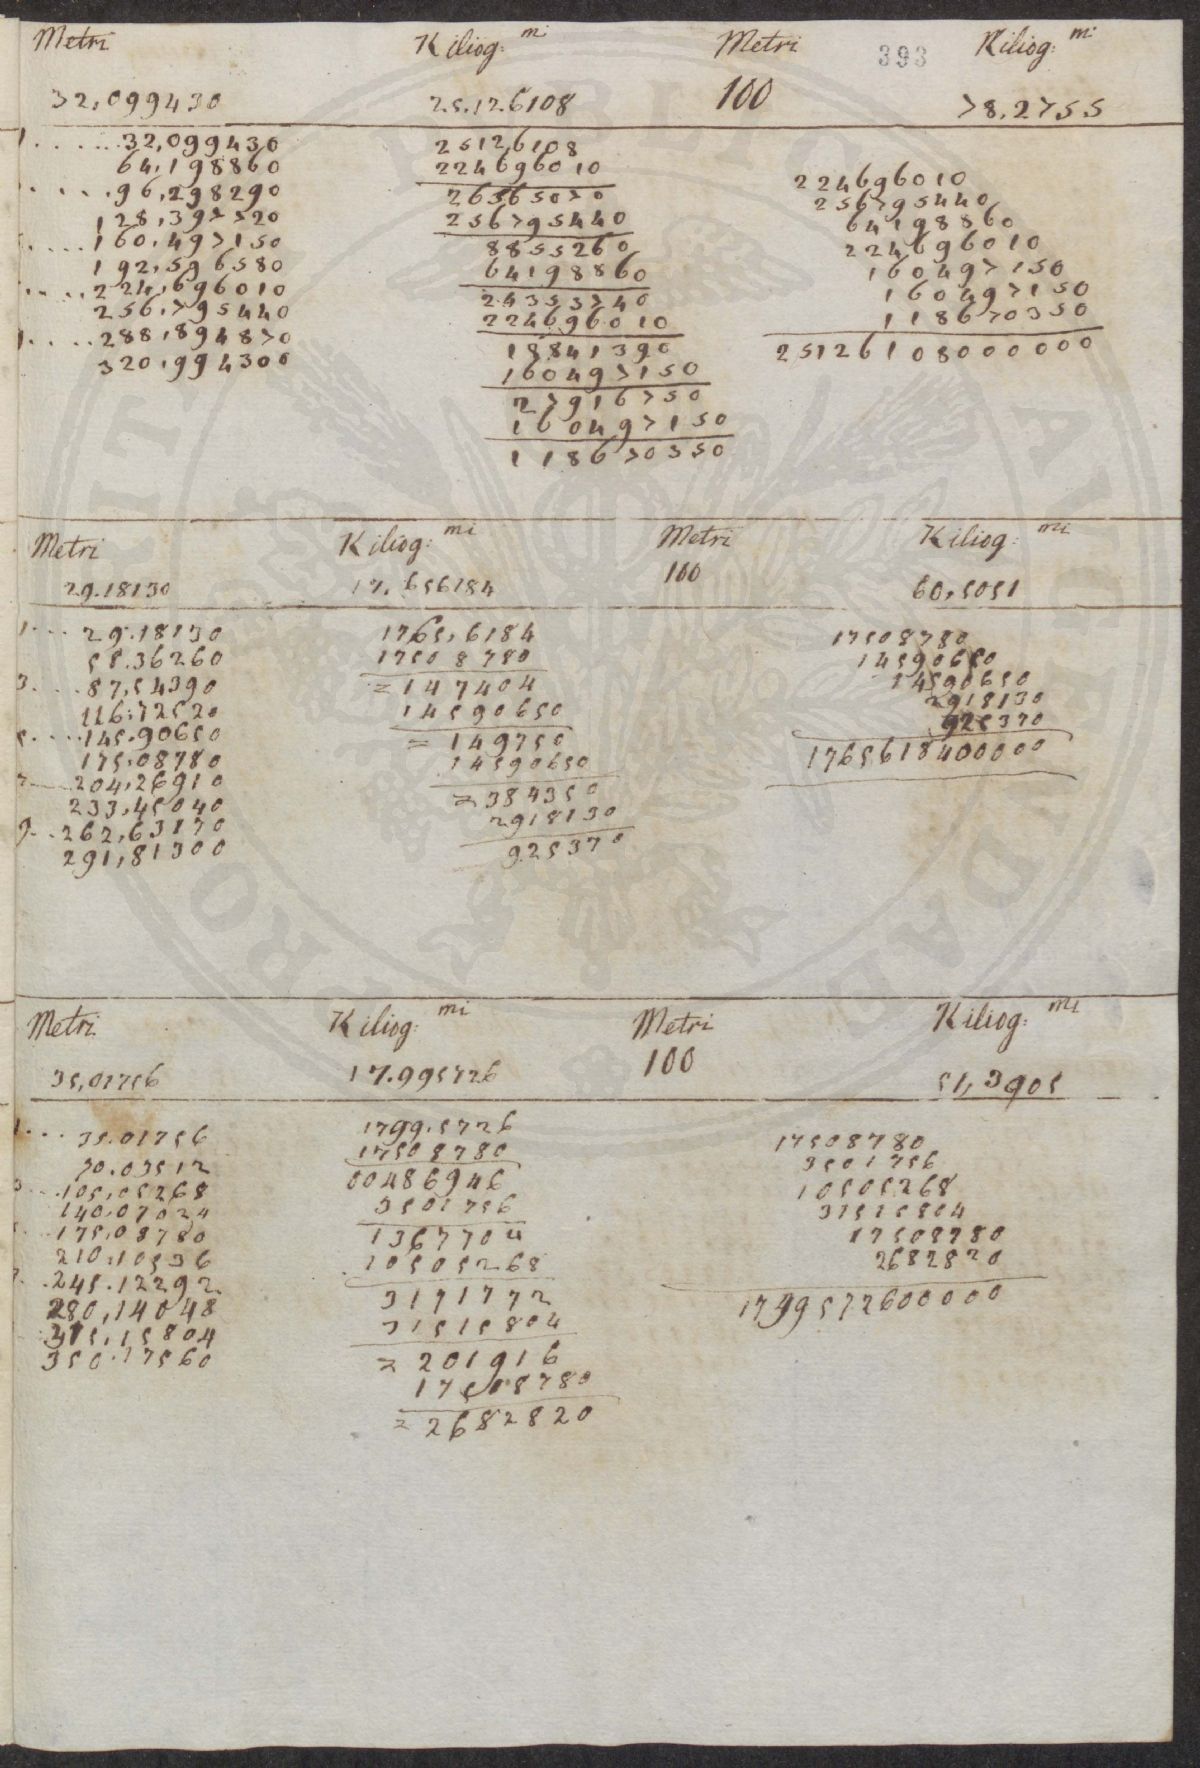 Metri Kiliog: mi Metri 393 Kiliog: mi
32,099430 25.126108 100 78,2755
1......32,099430
64,198860
.....96,298290
128,397720
.....160,497150
192,596580
.....224,696010
256,795440
1.....288,894870
320,994300
25126108
224696010
26565070
256795440
8855260
64198860
24353740
224696010
18841390
160497150
27916750
160497150
118670350
224696010
256795440
64198860
224696010
160497150
160497150
118670350
25126108000000
Metri Kiliog: mi Metri Kiliog: mi
29.18130 17.656184 100 60,5051
1.... 29.18130
58.36260
3.... 87,54390
116,72520
5.... 145.90650
175,08780
7 204,26910
233,45040
9... 262,63170
291,81300
1765,6184
17508780
= 147404
14590650
= 149750
14590650
= 384350
2918130
925370
17508780
14590650
14590650
2918130
925370
1765618400000
Metri Kiliog: mi Metri Kiliog: mi
35,01756 17.995726 100 51,3905
1... 35.01756
70.03512
105,05268
140,07024
175,08780
210,10536
245.12292
280,14048
315,15804
350.17560
1799.5726
17508780
00486946
3501756
1367704
10505268
3171772
31515804
= 201916
17508780
= 2682820
17508780
3501756
10505268
31515804
17508780
2682820
1799572600000